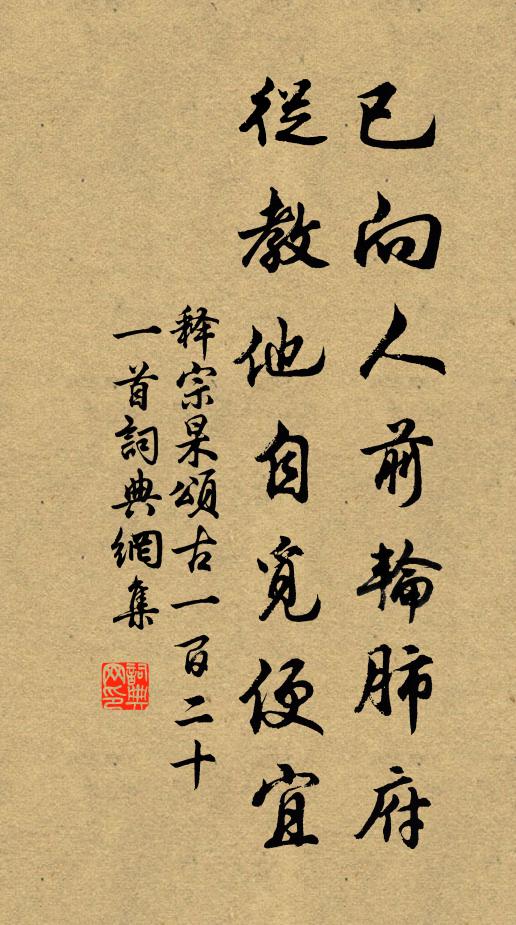 已向人前輪肺府
從教他自覓便宜
释宗杲頌古一百二十
一首詞典網集
詞典网印